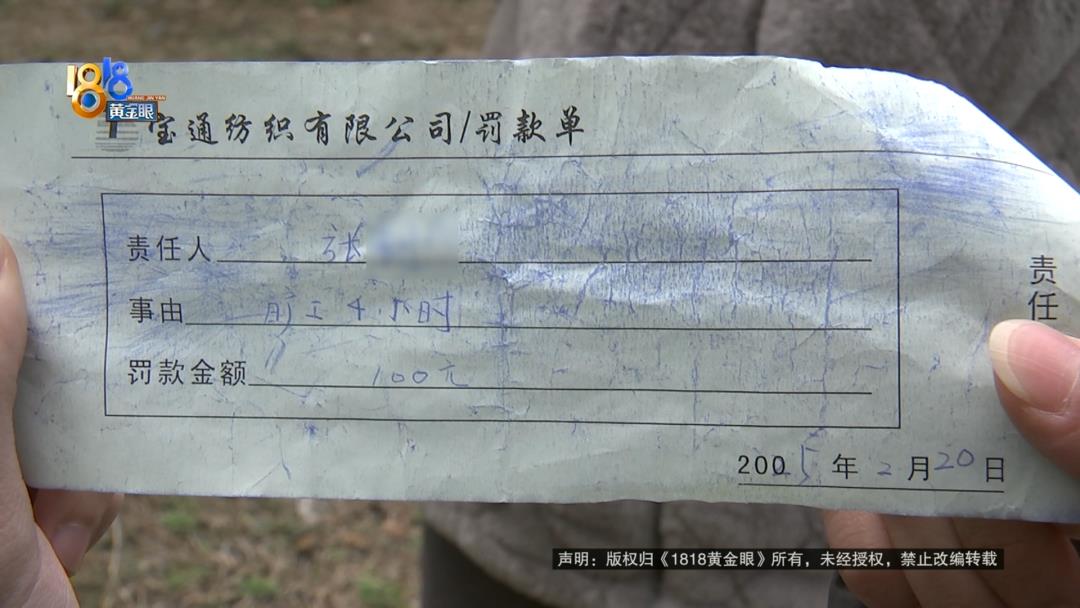 1818
HUANG JIN YAN
黄金眼
宝通纺织有限公司/罚款单
责任人 张
事由 旷工4小时
罚款金额 100元
2005年2月20日
责任
声明：版权归《1818黄金眼》所有，未经授权，禁止改编转载